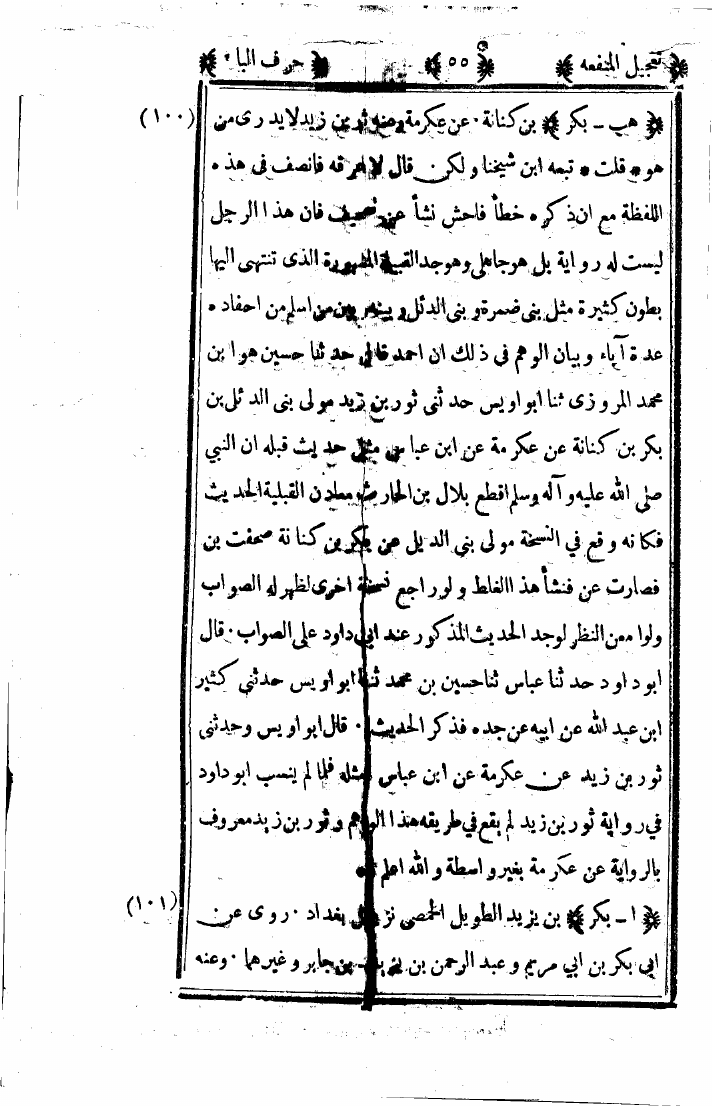 تعجيل المنفعه ٥٥ حرف الباء
هب ـ بكر بن كنانة ٠ عن عكرمة وعنه ثور بن زيد لا يدرى من (١٠٠)
هو * قلت * تبعه ابن شيخنا ولكن قال لا اعرفه فانصف فى هذه
اللفظة مع ان ذكره خطأ فاحش نشأ عن تصحيف فان هذا الرجل
ليست له رواية بل هو جاهلى وهو جد القبيلة المشهورة الذى تنتهى اليها
بطون كثيرة مثل بنى ضمرة وبنى الدئل وبينه وبين من اسلم من احفاده
عدة آباء وبيان الوهم فى ذلك ان احمد قال حدثنا حسين هو ابن
محمد المروزى ثنا ابو اويس حدثنى ثور بن زيد مولى بنى الدئل بن
بكر بن كنانة عن عكرمة عن ابن عباس مثل حديث قبله ان النبي
صلى الله عليه وآله وسلم اقطع بلال بن الحارث معادن القبلية الحديث
فكانه وقع في النسخة مولى بني الديل عن بكر بن كنانة صحفت بن
فصارت عن فنشأ هذا الغلط ولو راجع نسخة اخرى لظهر له الصواب
ولو امعن النظر لوجد الحديث المذكور عند ابي داود على الصواب ٠ قال
ابو داود حدثنا عباس ثنا حسين بن محمد ثنا ابو اويس حدثنى كثير
ابن عبد الله عن ابيه عن جده فذكر الحديث ٠ قال ابو اويس وحدثنى
ثور بن زيد عن عكرمة عن ابن عباس مثله فلما لم ينسب ابو داود
في رواية ثور بن زيد لم يقع في طريقه هذا الوهم وثور بن زيد معروف
بالرواية عن عكرمة بغير واسطة والله اعلم *
ا ـ بكر بن يزيد الطويل الحمصى نزيل بغداد ٠ روى عن (١٠١)
ابي بكر بن ابي مريم وعبد الرحمن بن يزيد بن جابر وغيرهما ٠ وعنه